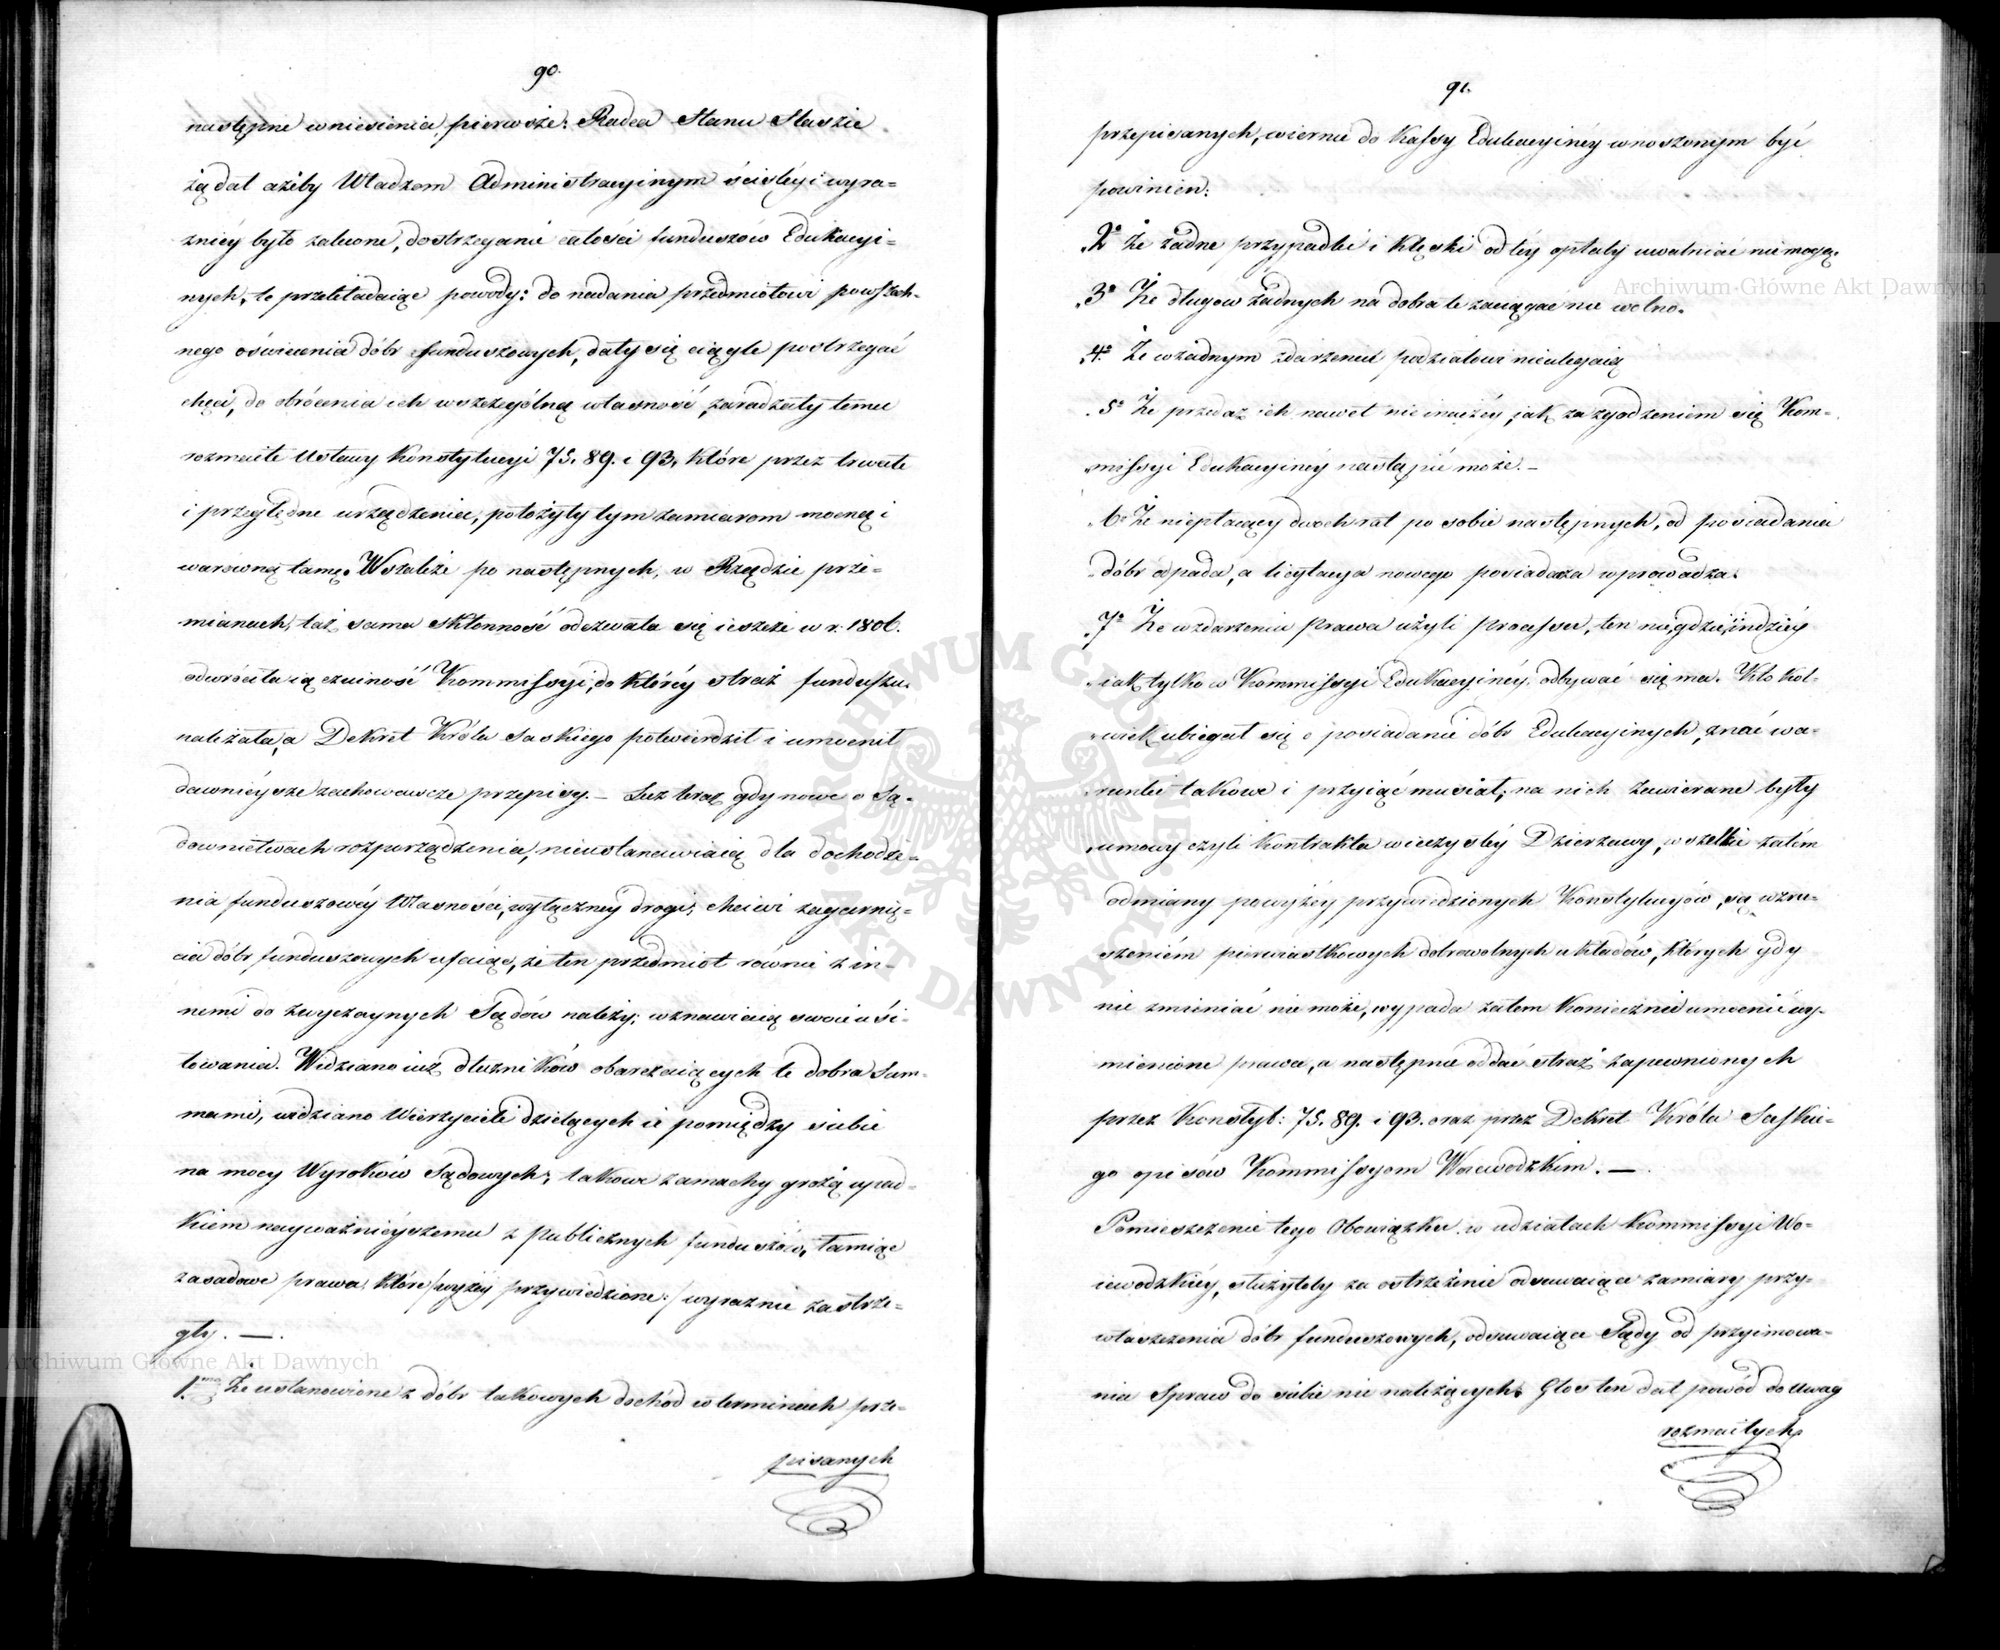 90.
następne wniesienia pierwsze: Radca Stanu Staszic
żądał ażeby Władzom Administracyinym ściśléy i wyra=
źniéy było zalecone, dostrzeganie całości funduszów Edukacyi=
nych, te przekładaiąc powody: do nadania przedmiotowi powszech=
nego oświecenia dóbr funduszowych, dały się ciągle postrzegać
chęci, do obrócenia ich w szczególną własność, zaradzały temu
rozmaite Ustawy Konstytucyi 75. 89. i 93, które przez trwałe
i przeględne urządzenia, położyły tym zamiarom mocną i
warowną tamę. Wszakże po następnych, w Rządzie prze=
mianach, taż sama skłonność odezwała się ieszcze w r. 1806.
odwróciła ią czuinosć Kommissyi, do któréy straż funduszu
należała, a Dekret Króla Saskiego potwierdził i umocnił
dawniéysze zachowawcze przepisy. — Lecz teraz gdy nowe o Są=
downictwach rozporządzenia, nieustanawiaią dla dochodze=
nia funduszowéy Własności, wyłączney drogi, chciwi zagarnię=
cia dóbr funduszowych ufaiąc, że ten przedmiot równie z in=
nemi do zwyczaynych Sądów należy, wznawiaią swoie usi=
łowania. Widziano iuż dłużników obarczaiących te dobra Sum=
mami, widziano Wierzycieli dzielących ie pomiędzy siebie
na mocy Wyroków Sądowych; takowe zamachy grożą upad=
kiem nayważniéyszemu z publicznych funduszów, łamiąc
zasadowe prawa, które /:wyżéy przywiedzione:/ wyraźnie zastrze=
gły. —.
1.mo Że ustanowione z dóbr takowych dochód w terminach prze=
pisanych
91.
przepisanych, wiernie do Kassy Edukacyinéy wnoszonym być
powinien.
2o Że żadne przypadki i klęski od téy opłaty uwalniać nie mogą.
3o Że długów żadnych na dobra te zaciągać nie wolno.
4o Że w żadnym zdarzeniu podziałowi nieulegaią
5o Że przedaż ich nawet nie inaczéy, jak za zgodzeniem się Kom=
missyi Edukacyinéy nastąpić może. —
6o Że niepłacący dwoch rat po sobie następnych, od posiadania
dóbr odpada, a licytacya nowego posiadacza wprowadza.
7o Że w zdarzeniu prawa użyli processu, ten nie gdzie indziéy
iak tylko w Kommissyi Edukacyinéy, odbywać się ma. Kto kol=
wiek ubiegał się o posiadanie dóbr Edukacyinych, znać wa=
runki takowe i przyiąć musiał; na nich zawierane były
umowy czyli Kontrakta wieczystéy Dzierżawy, wszelkie zatém
odmiany powyżéy przywiedzionych Konstytucyów, są wzru=
szeniém pierwiastkowych dobrowolnych układów, których gdy
nie zmieniać nie może, wypada zatem koniecznie umocnić wy=
mienione prawa, a następnie oddać straż zapewnionych
przez Konstyt: 75. 89. i 93. oraz przez Dekret Króla Saskie=
go opisów Kommissyom Woiewodzkim. —.
Pomieszczenie tego Obowiązku w udziałach Kommissyi Wo=
iewodzkiéy, służyłeby za ostrzeżenie odsuwaiące zamiary przy=
właszczenia dóbr funduszowych, odsuwaiące Sądy od przyimowa=
nia Spraw do siebie nie należących. Głos ten dał powód do Uwag
rozmaitych.
Archiwum Główne Akt Dawnych
Archiwum Główne Akt Dawnych
ARCHIWUM GŁÓWNE AKT DAWNYCH